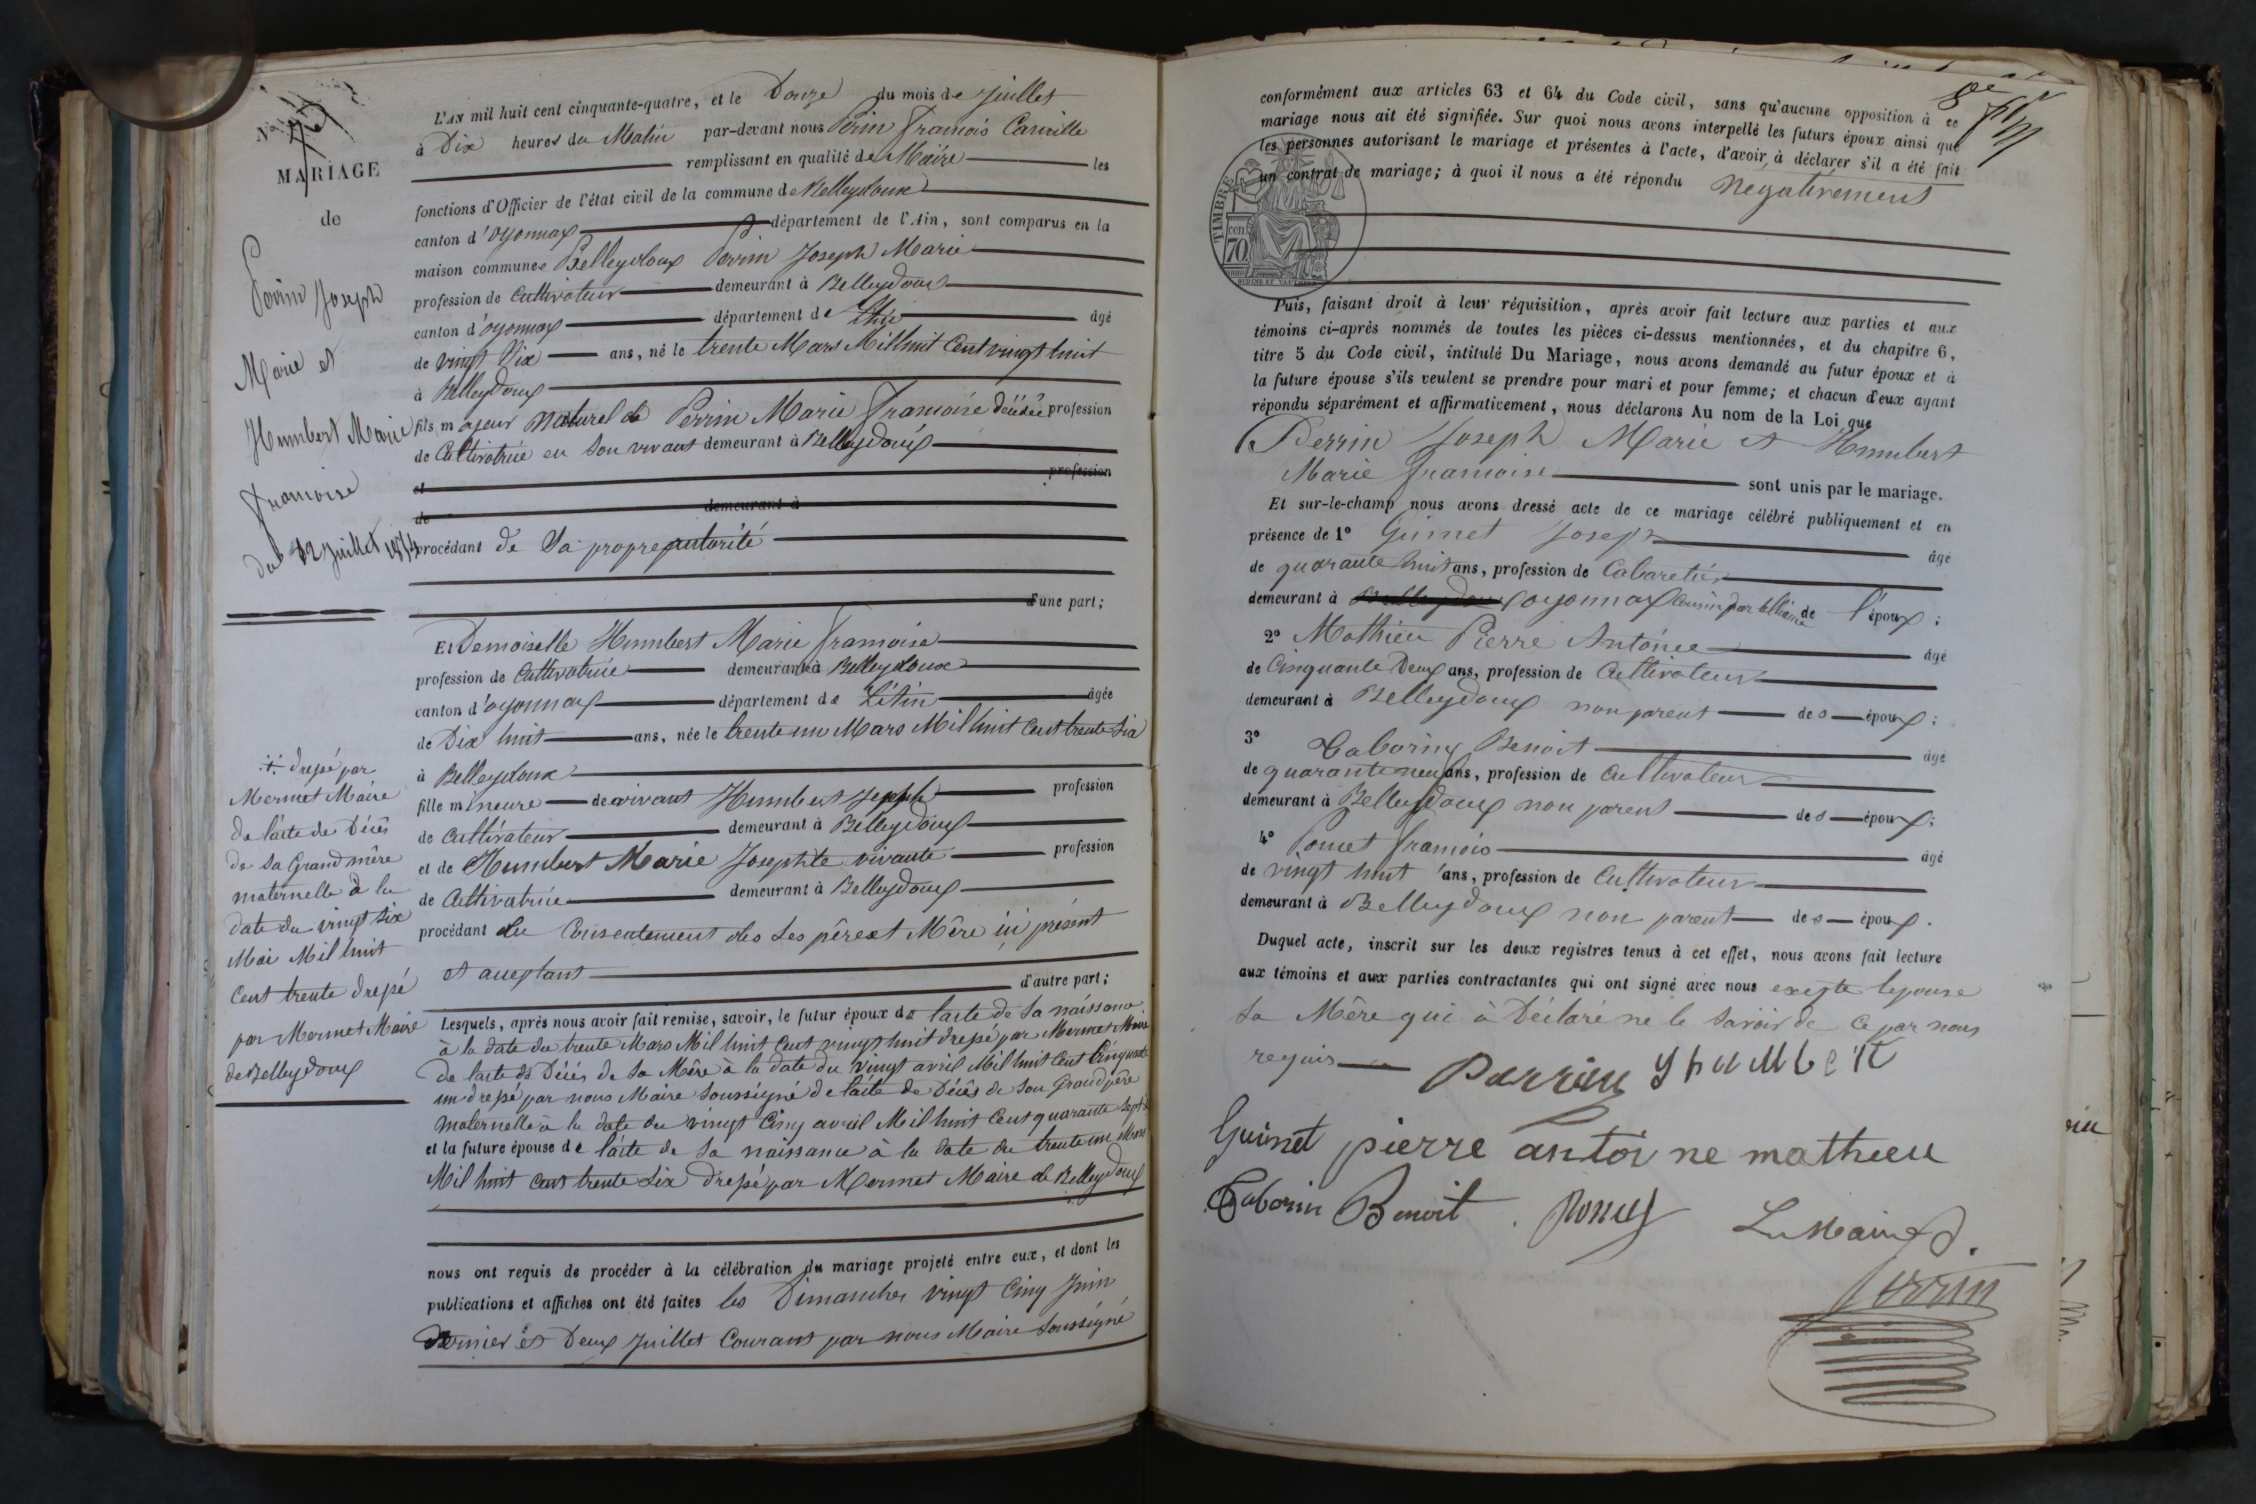 N°
MARIAGE
de
Perrin Joseph
Marie et
Humbert Marie
Francoise
du 12 Juillet 1854
drepé par
Mermet Maire
De l'acte de Décès
de sa Grand mère
maternelle à la
date du vingt six
Mai Mil huit
Cent trente drepé
par Mermet Maire
de Belleydoux
L'AN mil huit cent cinquante-quatre, et le Douze du mois de Juillet
à Dix heures du Matin par-devant nous Perrin François Camille
remplissant en qualité de Maire les
fonctions d'Officier de l'état civil de la commune de Belleydoux
canton d'Oyonnax département de l'Ain, sont comparus en la
maison commune Belleydoux Perrin Joseph Marie
profession de Cultivateur demeurant à Belleydoux
canton d'oyonnax département de âgé
de vingt Six ans, né le trente Mars Mil huit Cent vingt huit
à Belleydoux
fils majeur Naturel de Perrin Marie Francoise décédée profession
de Cultivatrice en Son vivant demeurant à Belleydoux
et profession
de demeurant à
procédant de Sa propre autorité
d'une part;
Et Demoiselle Humbert Marie Francoise
profession de Cultivatrice demeurant à Belleydoux
canton d'oyonnax département de âgée
de Dix huit ans, née le trente un Mars Mil huit Cent trente Six
à Belleydoux
fille mineure de vivant Humbert Joseph profession
de Cultivateur demeurant à Belleydoux
et de Humbert Marie Josephte vivante profession
de Cultivatrice demeurant à Belleydoux
procédant du Consentement des Ses père et Mère ici présent
et aceptant
d'autre part;
Lesquels, après nous avoir fait remise, savoir, le futur époux de l'acte de Sa naissance
à la date du trente Mars Mil huit Cent vingt huit drepé par Mermet Maire
De l'acte de Décès de Sa Mère à la date du vingt avril Mil huit Cent Cinquante
un drepé par nous Maire Soussigné de l'acte de Décès de Son Grand père
maternelle à la date du vingt Cinq avril Mil huit Cent quarante Sept
et la future épouse de l'acte de Sa naissance à la date du trente un Mars
Mil huit Cent trente Six drepé par Mermet Maire de Belleydoux
nous ont requis de procéder à la célébration du mariage projeté entre eux, et dont les
publications et affiches ont été faites les Dimanches vingt Cinq Juin
Dernier et Deux Juillet Courant par nous Maire Soussigné
conformément aux articles 63 et 64 du Code civil, sans qu'aucune opposition à ce
mariage nous ait été signifiée. Sur quoi nous avons interpellé les futurs époux ainsi que
les personnes autorisant le mariage et présentes à l'acte, d'avoir à déclarer s'il a été fait
un contrat de mariage; à quoi il nous a été répondu Négativement
TIMBRE
70
Puis, faisant droit à leur réquisition, après avoir fait lecture aux parties et aux
témoins ci-après nommés de toutes les pièces ci-dessus mentionnées, et du chapitre 6,
titre 5 du Code civil, intitulé Du Mariage, nous avons demandé au futur époux et à
la future épouse s'ils veulent se prendre pour mari et pour femme; et chacun d'eux ayant
répondu séparément et affirmativement, nous déclarons Au nom de la Loi que
Perrin Joseph Marie et Humbert
Marie Francoise sont unis par le mariage.
Et sur-le-champ nous avons dressé acte de ce mariage célébré publiquement et en
présence de 1° Guinet Joseph âgé
de quarante huit ans, profession de Cabaretier
demeurant à Belleydoux oyonnax Cousin par alliance de l'époux;
2° Mathieu Pierre Antoine âgé
de Cinquante Deux ans, profession de Cultivateur
demeurant à Belleydoux non parent des époux;
3° Taborin Benoit âgé
de quarante neuf ans, profession de Cultivateur
demeurant à Belleydoux non parent des époux;
4° Poncet François âgé
de vingt huit ans, profession de Cultivateur
demeurant à Belleydoux non parent des époux.
Duquel acte, inscrit sur les deux registres tenus à cet effet, nous avons fait lecture
aux témoins et aux parties contractantes qui ont signé avec nous exepte lepouse
Sa Mère qui à Déclaré ne le Savoir de Ce par nous
requis
Perrin Humbert
Guinet pierre antoi ne mathieu
Taborin Benoit Poncet Le Maire
Perrin